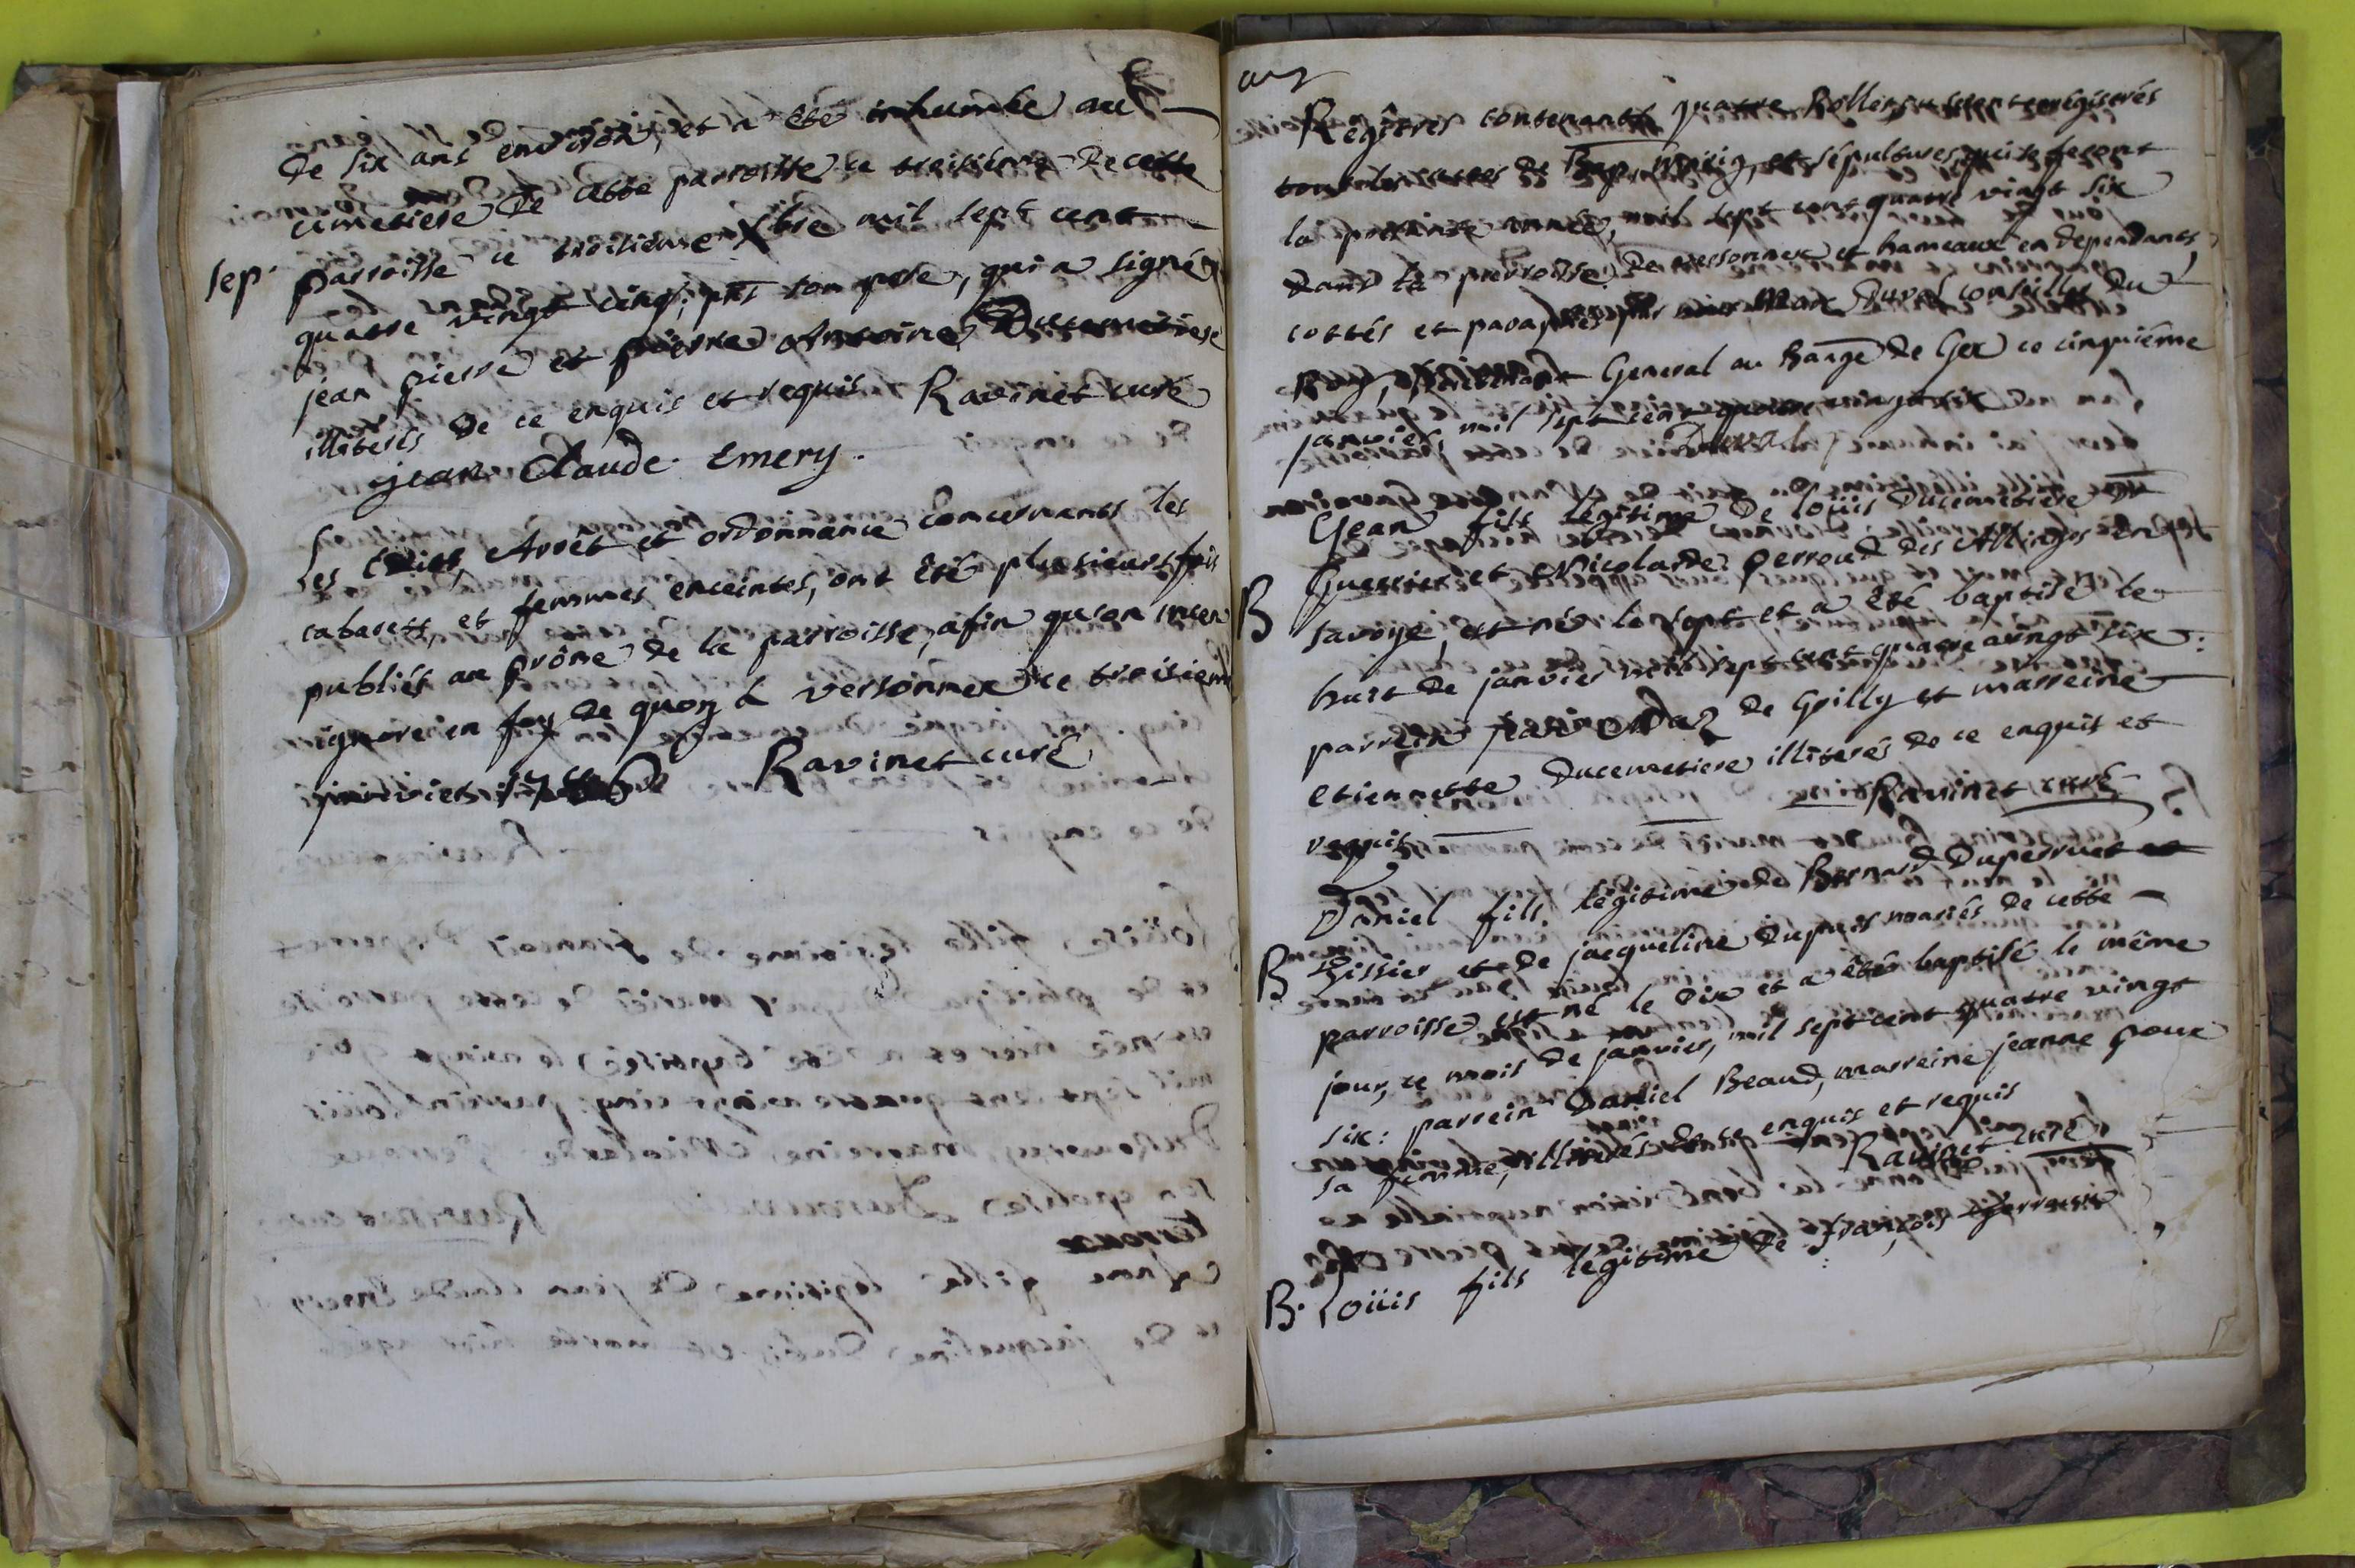 de six ans environ, et a été inhumée au
cimetiere de cette parroisse ce treisieme de cette
sep. parroisse ce troisieme Xbre mil sept cent
quatre vingt cinq, pnt son pere, qui a signé
jean pierre et pierre Antoine Ducemetiere
illiterés de ce enquis et requis Ravinet curé
jean Claude Emery.
Les Edits, Arrêt et ordonnance concernants les
cabarets, et femmes enceintes, ont été plusieurs fois
publiés au prône de la parroisse, afin qu'on n'en
ignore, en foy de quoy à versonnex ce troisieme
janvier Ravinet curé
Regîtres contenants quatre Rolles enregîtrés
tous les actes de Bap. Mariag. et sépultures, qui se feront
la presente année, mil sept cent quatre vingt six
dans la parroisse de versonnex et hameaux en dependants,
cottés et paraphés par Marc Duval Conseiller du
Roy, Lieutenant General au baage de Gex ce cinquiême
janvier, mil sept cent quatre vingt six
Duval
Jean fils legitime de Loüis Ducemetiere
Guerrier et Nicolarde perroud des Allinges en
B savoye, est né le sept et a été baptisé le
huit de janvier mil sept cent quatre vingt six:
parrein jean de Grilly et marreine
etiennette Ducemetiere illiterés de ce enquis et
requis Ravinet curé
Daniel fils légitime de Bernard Duperruet et
B Tissier et de jacqueline Dupuis mariés de cette
parroisse est né le dix et a étés baptisé le même
jour, ce mois de janvier, mil sept cent quatre vingt
six: parrein Daniel Beaud, marreine jeanne
sa femme, illiterés de ce enquis et requis
Ravinet curé
B. Loüis fils légitime de françois